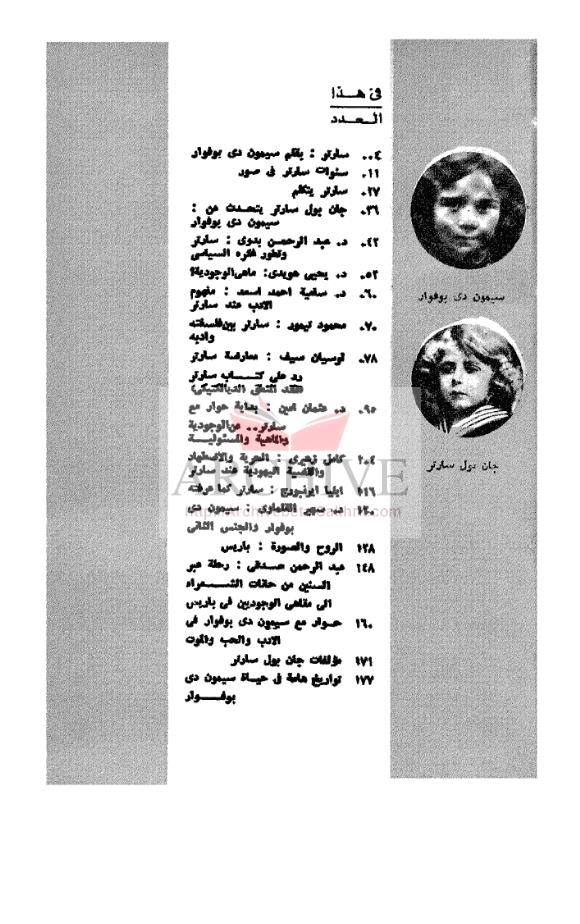 فى هـــذا
الـعـدد
٠٠٤ سارتر : بقلم سيمون دى بوفوار
٠١١ سنوات سارتر فى صور
٠٢٧ سارتر يتكلم
٠٣٦ جان بول سارتر يتحدث عن :
سيمون دى بوفوار
٠٤٢ د. عبد الرحمـن بدوى : سارتر
وتطور فكره السياسى
٠٥٢ د. يحيى هويدى: ماهى الوجودية؟
٠٦٠ د. سامية احمد اسعد : مفهوم
الادب عند سارتر
٠٧٠ محمود تيمور : سارتر بين فلسفته
وادبه
٠٧٨ لوسيان سيف : معارضة سارتر
رد على كتـــاب سارتر
(نقد العقل الديالكتيكى)
٠٩٥ د. عثمان امين : بداية حوار مع
سارتر.. عن الوجودية
والماهية والمسئولية
١٠٤ كامل زهيرى : الحرية والاضطهاد
والقضية اليهودية عند سارتر
١١٦ ايليا ايرنبورج : سارتر كما عرفته
١٢٠ د. سهير القلماوى : سيمون دى
بوفوار والجنس الثانى
١٢٨ الروح والصورة : باريس
١٤٨ عبد الرحمن صـدقى : رحلة عبر
السنين من حانات الشـــعراء
الى مقاهى الوجوديين فى باريس
١٦٠ حـوار مع سيمون دى بوفوار فى
الادب والحب والموت
١٧١ مؤلفات جان بول سارتر
١٧٧ تواريخ هامة فى حيـاة سيمون دى
بوفــوار
سيمون دى بوفوار
جان بول سارتر
ARCHIVE